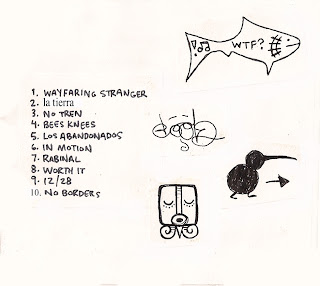 WTF?
1. WAYFARING STRANGER
2. la tierra
3. NO TREN
4. BEES KNEES
5. LOS ABANDONADOS
6. IN MOTION
7. RABINAL
8. WORTH IT
9. 12/28
10. NO BORDERS